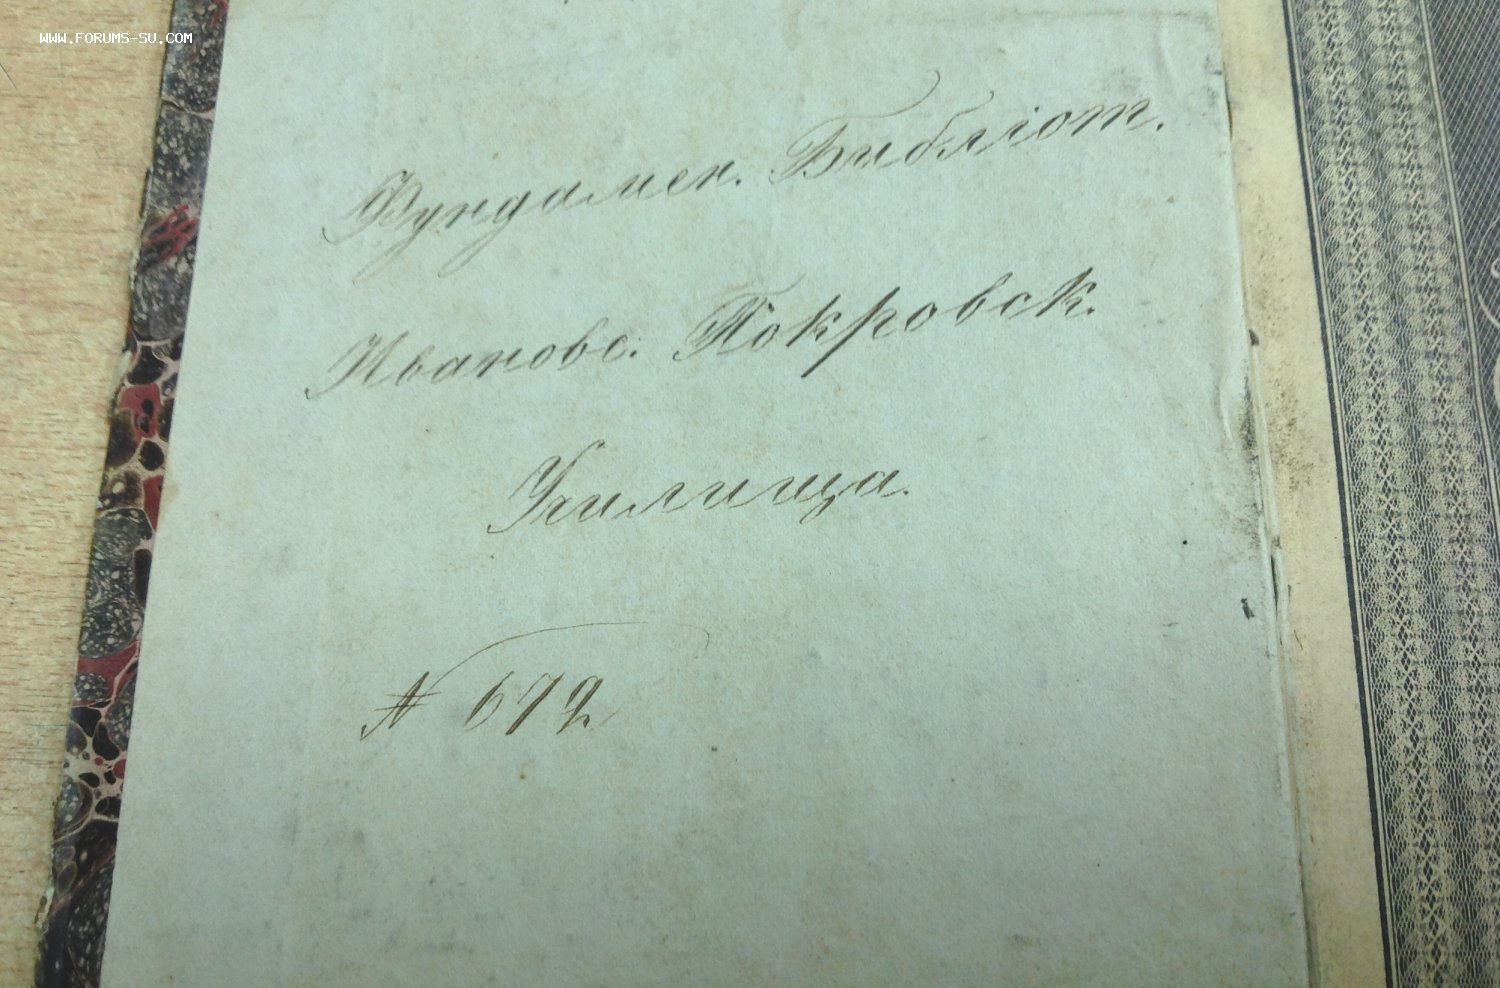 WWW.FORUMS-SU.COM
Фундамен. Библіот.
Ивановс. Покровск.
Училища.
№ 679.